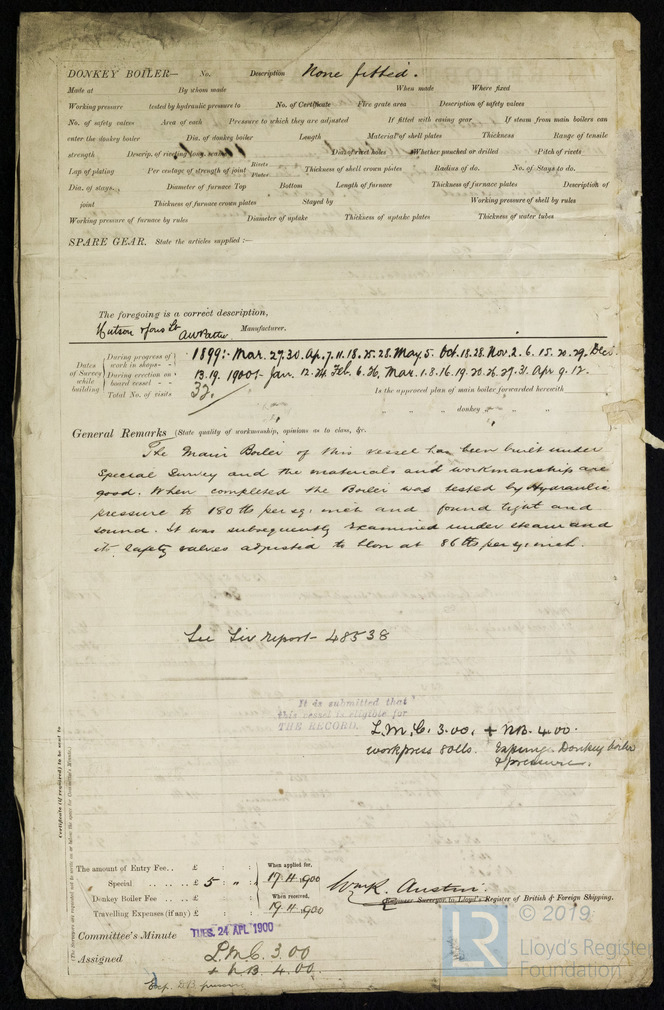 DONKEY BOILER— No. Description None fitted.
Made at By whom made When made Where fixed
Working pressure tested by hydraulic pressure to No. of Certificate Fire grate area Description of safety valves
No. of safety valves Area of each Pressure to which they are adjusted If fitted with easing gear If steam from main boilers can
enter the donkey boiler Dia. of donkey boiler Length Material of shell plates Thickness Range of tensile
strength Descrip. of riveting long. seams Dia. of rivet holes Whether punched or drilled Pitch of rivets
Lap of plating Per centage of strength of joint Rivets Plates Thickness of shell crown plates Radius of do. No. of Stays to do.
Dia. of stays. Diameter of furnace Top Bottom Length of furnace Thickness of furnace plates Description of
joint Thickness of furnace crown plates Stayed by Working pressure of shell by rules
Working pressure of furnace by rules Diameter of uptake Thickness of uptake plates Thickness of water tubes
SPARE GEAR. State the articles supplied :—
The foregoing is a correct description,
Hutson & Sons Ld Manufacturer.
Dates of Survey while building
During progress of work in shops - - 1899:- Mar. 27.30. Ap. 7.11.18.25.28. May 5. Oct. 18.28. Nov. 2.6.15.20.29. Dec.
During erection on board vessel - - 13.19. 1900:- Jan. 12.24. Feb. 6.26. Mar. 1.8.16.19.20.26.27.31. Apr. 9.12.
Total No. of visits 32. Is the approved plan of main boiler forwarded herewith
" " donkey " " "
General Remarks (State quality of workmanship, opinions as to class, &c.
The Main Boiler of this vessel has been built under
Special Survey and the materials and workmanship are
good. When completed the Boiler was tested by Hydraulic
pressure to 180 lbs per sq: inch and found tight and
sound. It was subsequently examined under steam and
its safety valves adjusted to blow at 86 lbs per sq: inch.
See Liv report 48538
It is submitted that
this vessel is eligible for
THE RECORD.
L.M.C. 3.00. + NB. 4.00.
work press 80 lbs. Expunge Donkey boiler
& pressure.
Certificate (if required) to be sent to
The amount of Entry Fee .. £ : : When applied for,
Special .. .. .. £ 5 : " : 19.4.1900
Donkey Boiler Fee .. .. £ : : When received,
Travelling Expenses (if any) £ : : 19.4.1900
Wm R. Austin.
Engineer Surveyor to Lloyd's Register of British & Foreign Shipping.
Committee's Minute TUES. 24 APL 1900
Assigned L.M.C. 3.00
+ NB 4.00.
© 2019
LR
Lloyd's Register
Foundation